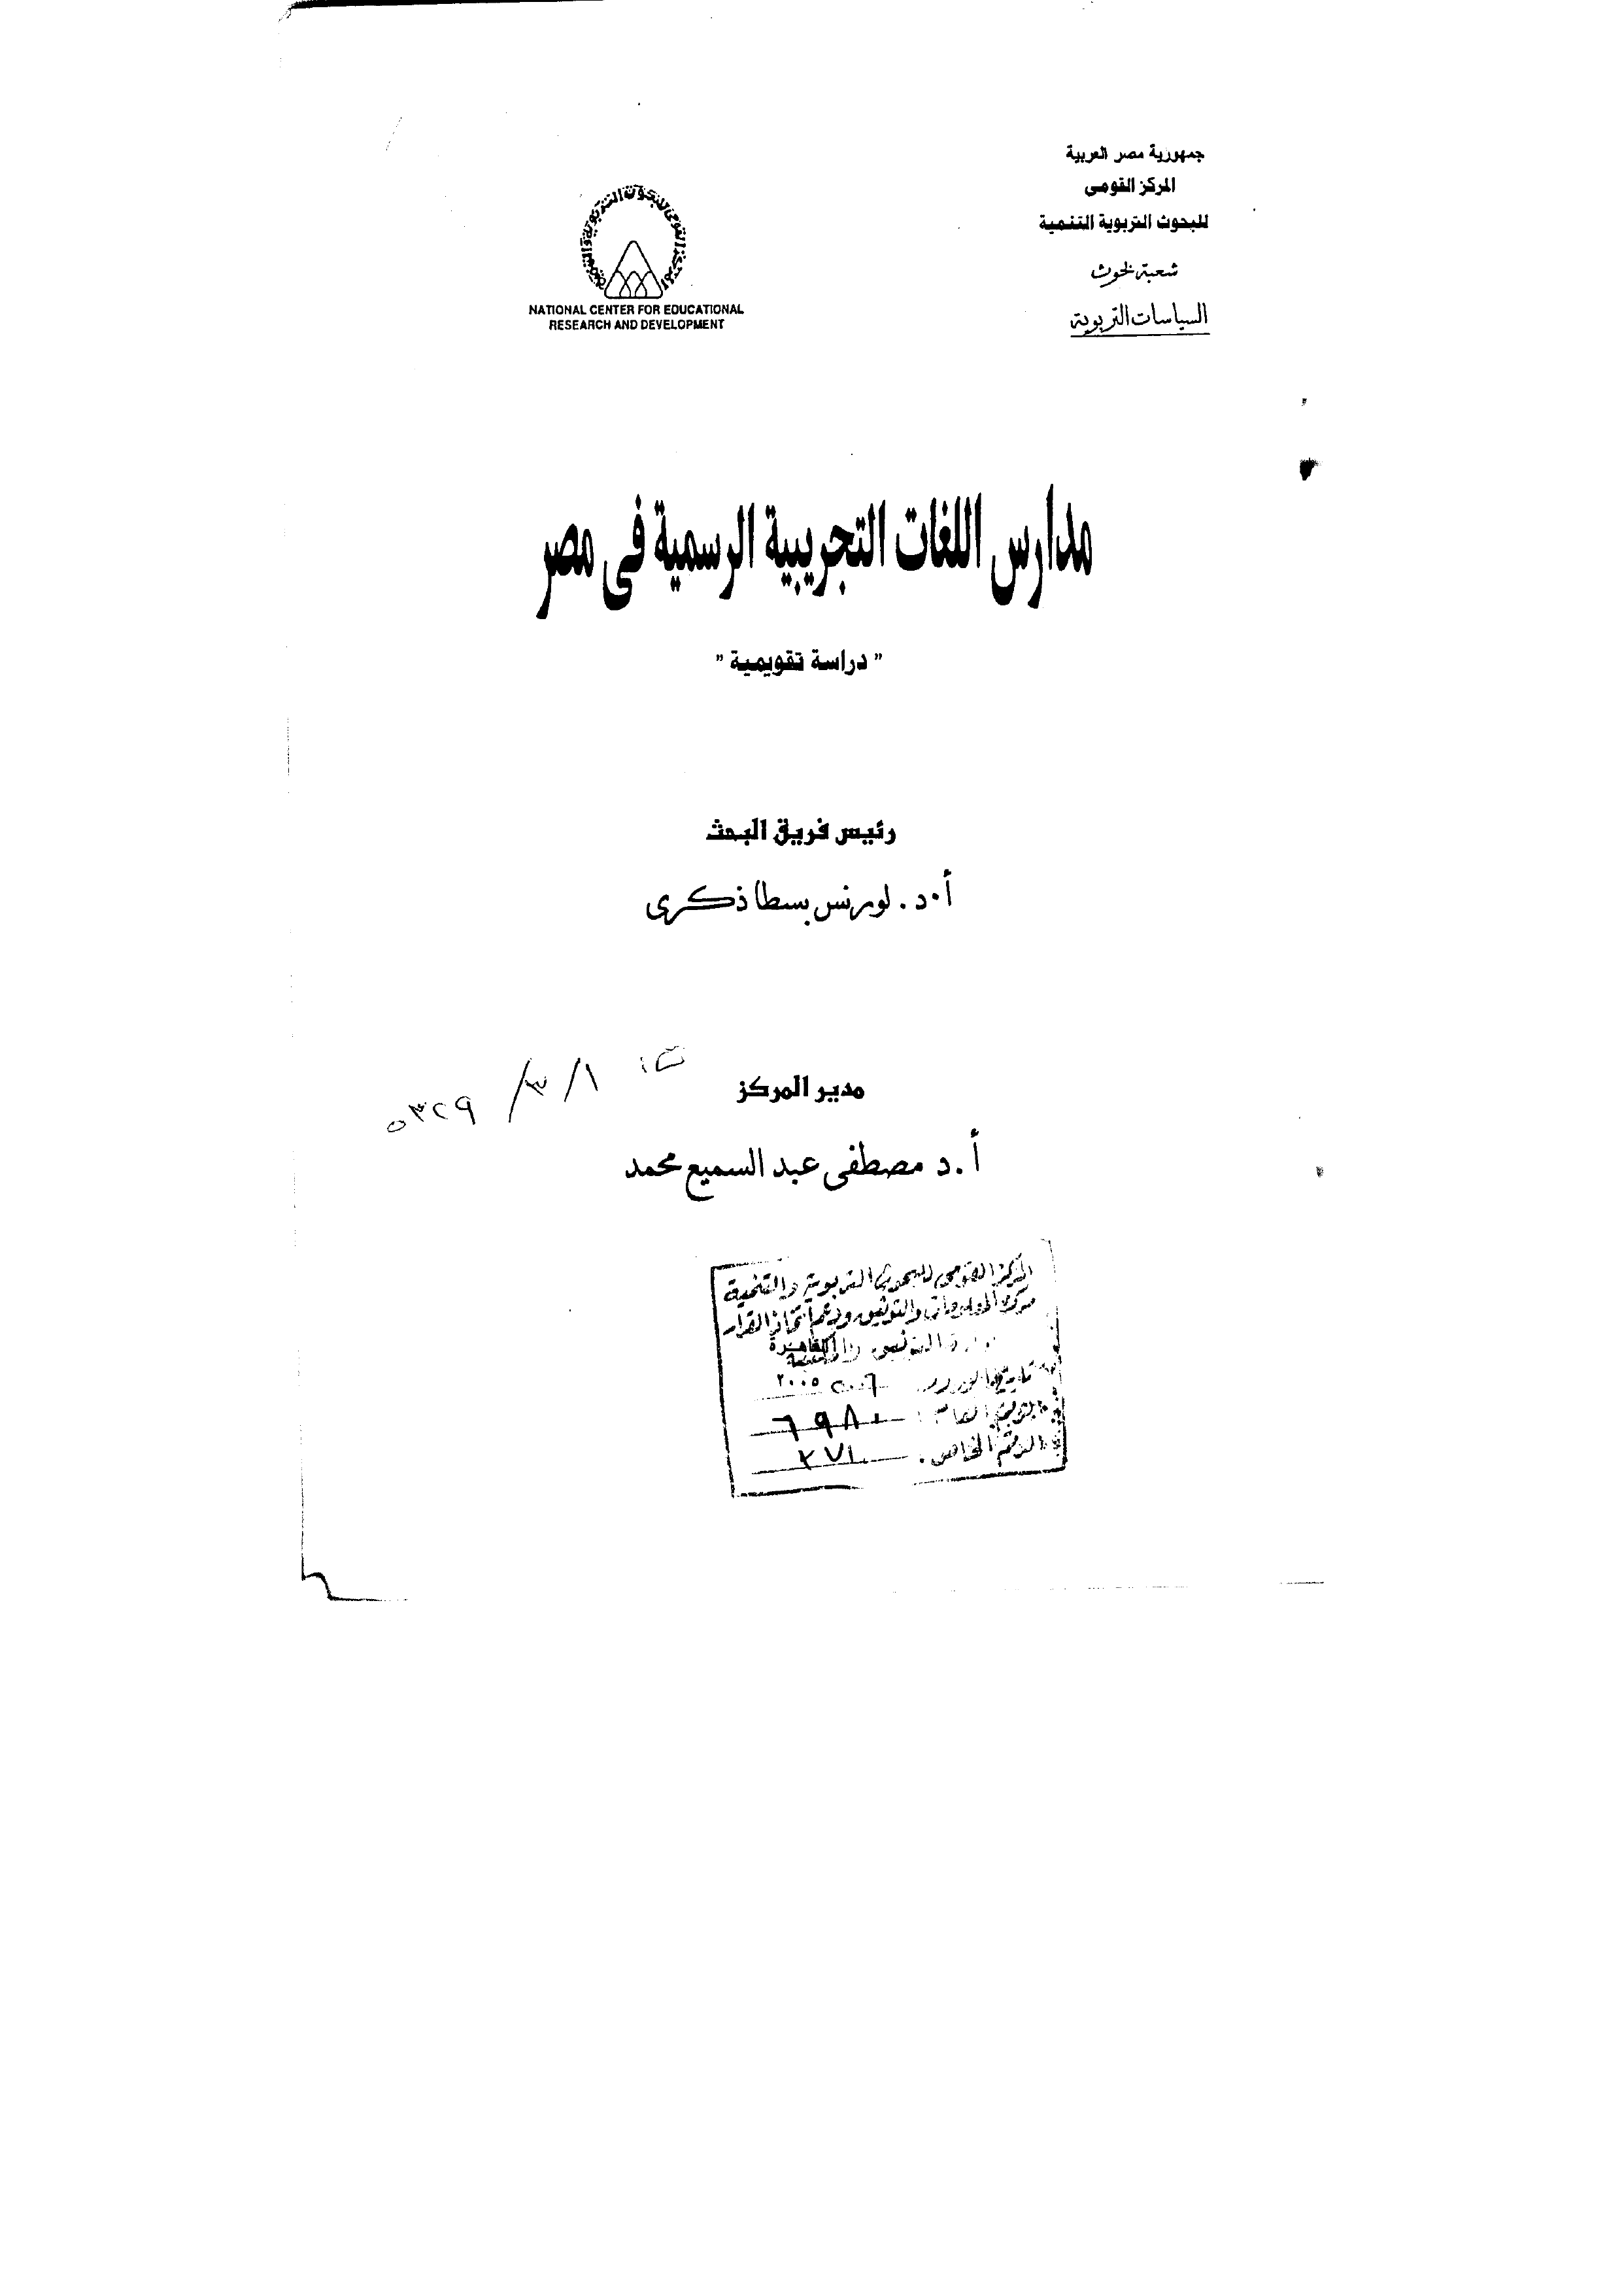 جمهورية مصر العربية
المركز القومى
للبحوث التربوية التنمية
شعبة بحوث
السياسات التربوية
المركز القومى للبحوث التربوية والتنمية
NATIONAL CENTER FOR EDUCATIONAL
RESEARCH AND DEVELOPMENT
مدارس اللغات التجريبية الرسمية فى مصر
" دراسة تقويمية "
رئيس فريق البحث
أ.د. لورنس بسطا ذكرى
مدير المركز
أ.د مصطفى عبد السميع محمد
المركز القومى للبحوث التربوية والتنمية
مركز المعلومات والتوثيق ودعم اتخاذ القرار
القاهرة
٢٠٠٥
٦٩٨٠
الرقم الخاص :